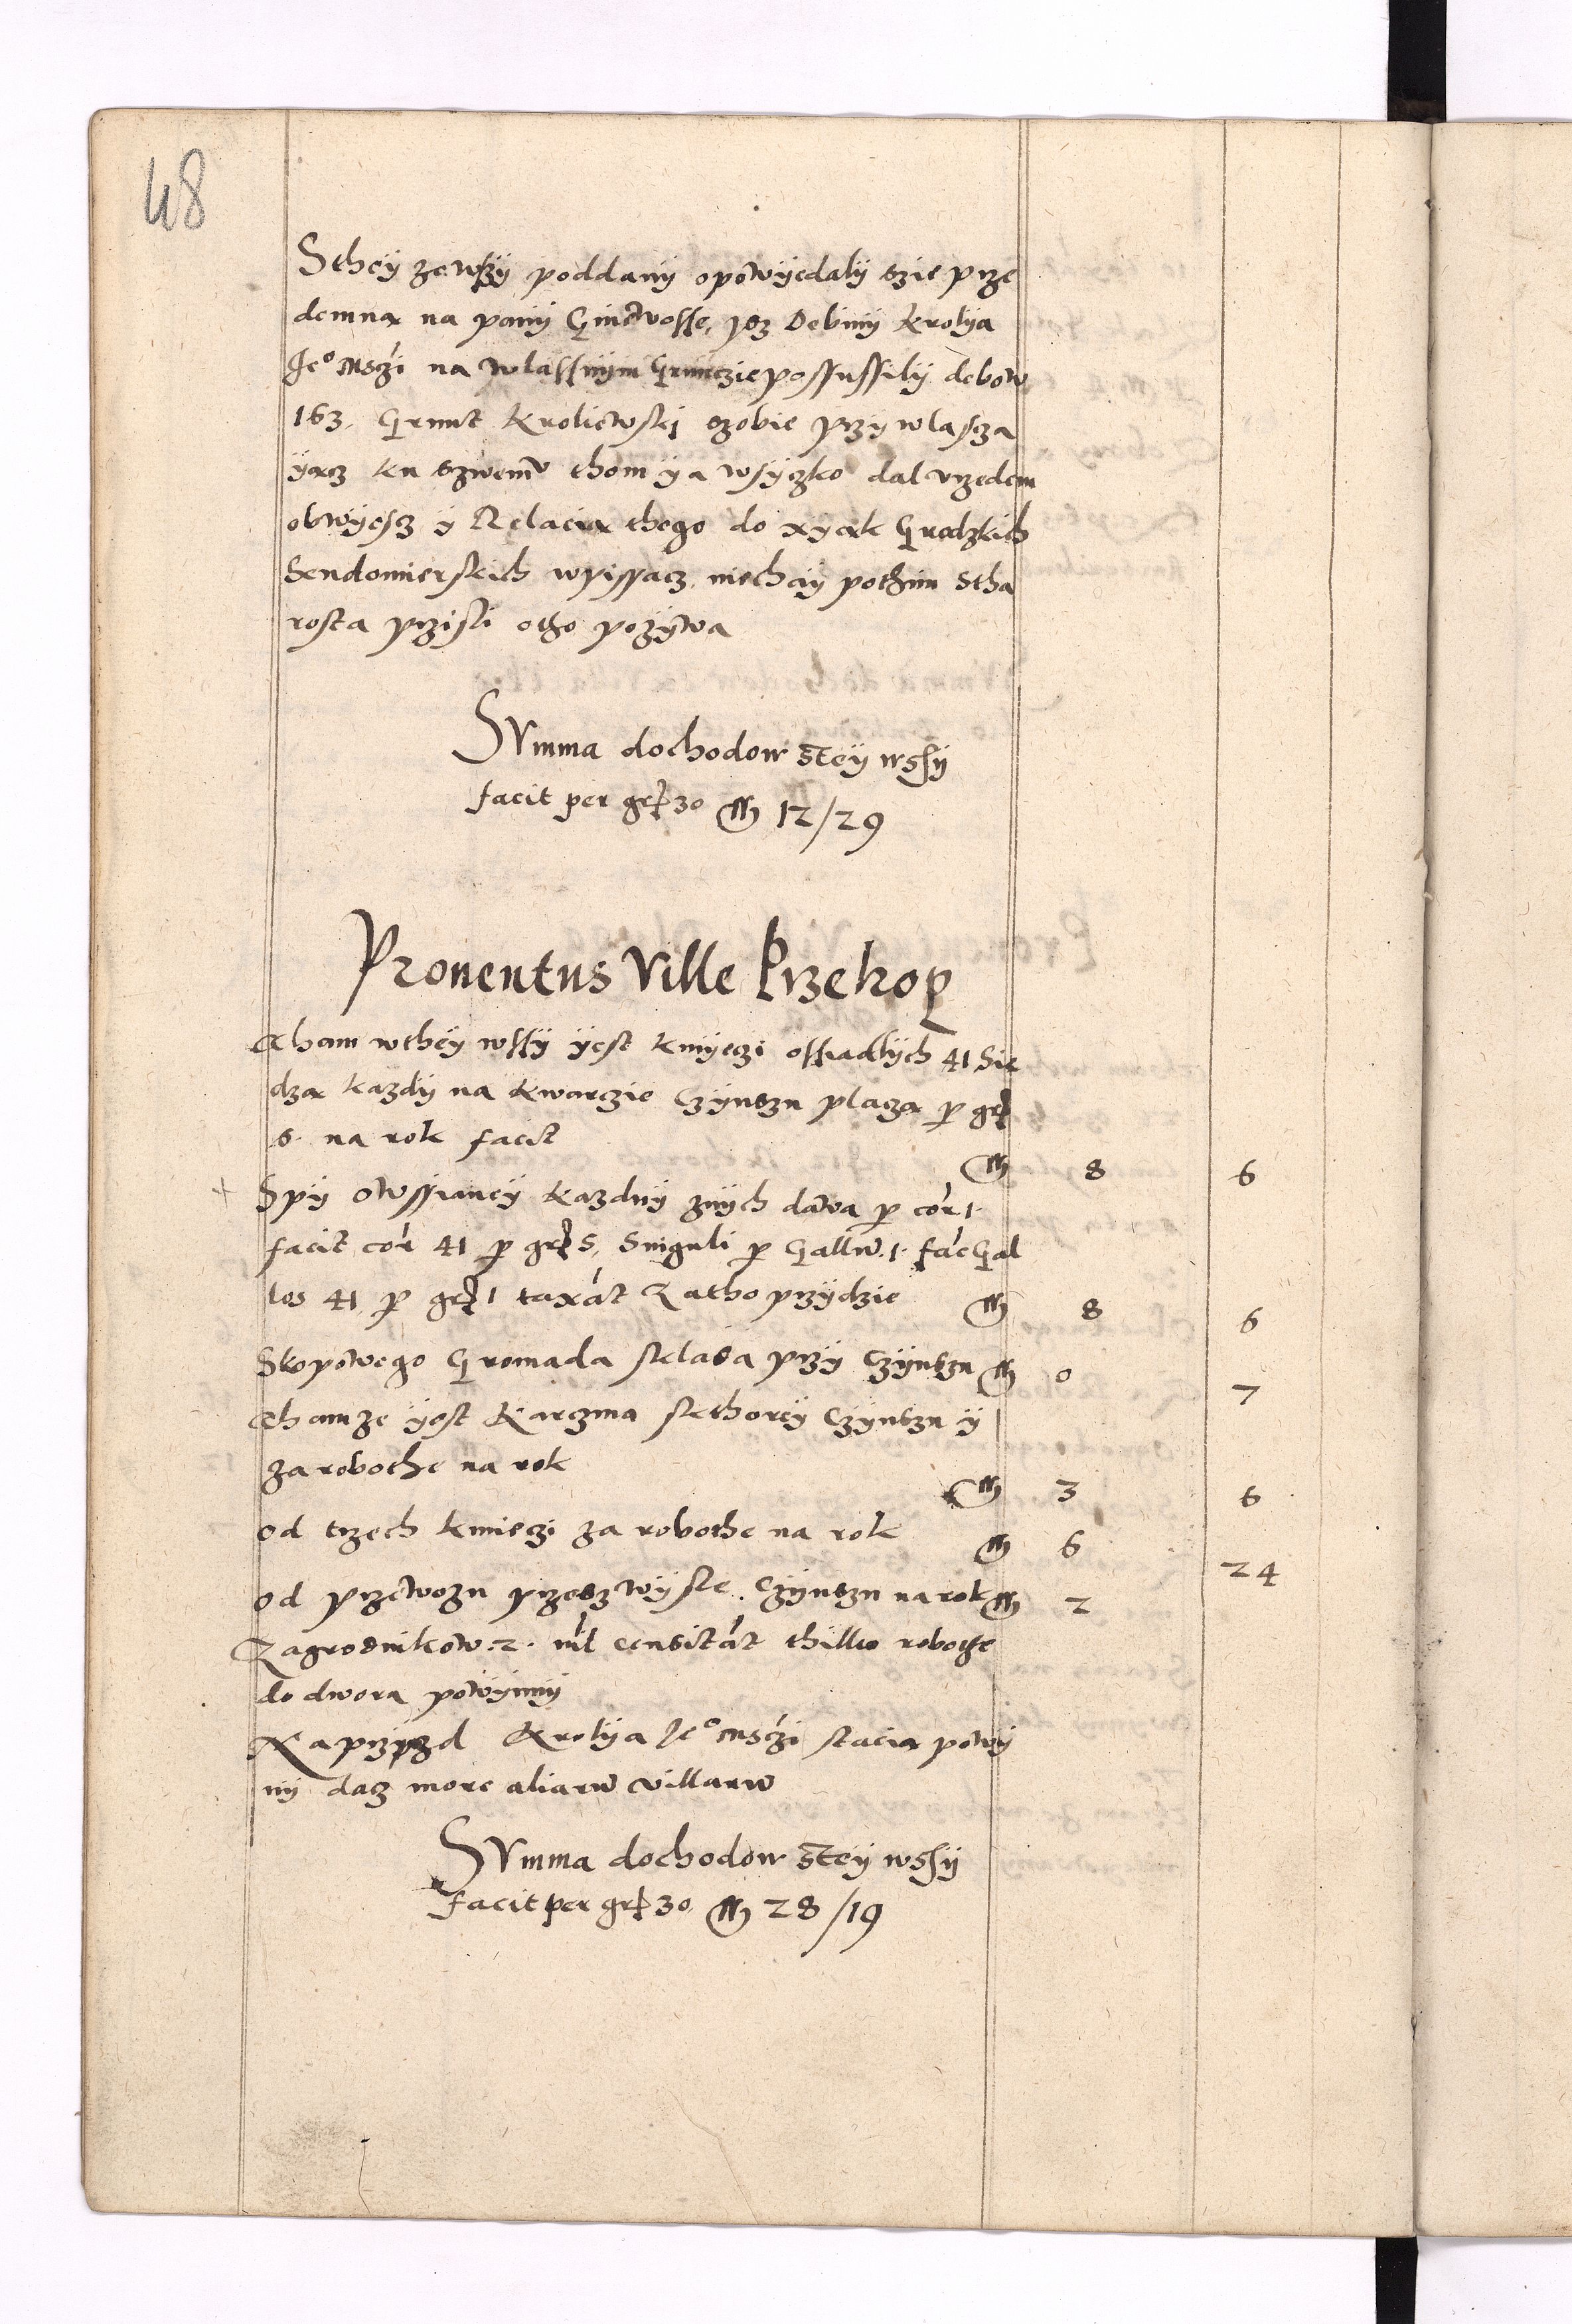 48
Sthey ze wszy poddany opowyedaly szie prze
demna na pany Gniewosse, ysz Debiny Krolya
Je⁰ Msczi na wlassnym Grunczie possussily debow
163, Grunt Kroliewski szobie przywlascza
yącz ku szwemu thom ya wsyczko dal vrzedem
obwyescz y Relacią thego do xyąk Grodzkich
Sendomierskich wpissacz, niechay pothim Stha
rosta przisli otho pozywa
Summa dochodow stey wssy
facit per gr 30 m 12/29
Prouentus Ville Przekop
Tham wthey wssy yest kmyeczi ossiadlych 41 Sie
dzą kazdy na kwarczie Czynszu placzą p gr
6. na rok facit m 8 6
+ Spy owssianey kazdny znych dawa p cor 1.
facit cor 41 p gr 5, Singuli p Gallin. 1. fac Gal
los 41 p gr 1 taxat Zatho przydzie m 8 6
Skopowego Gromada sklada przy Czynszu m 0 7
Thamze yest Karczma skthorey Czynszu y
za robothe na rok m 3 6
od trzech kmieczi za robothe na rok m 6 24
od przewozu przesz wysle. Czynszu na rok m 2
Zagrodnikow .2. nil censitat thilko robothe
do dwora powynny
Na przyyazd Krolya Je⁰ Msczi stacią powy
ny dacz more aliaru villaru
Summa dochodow stey wssy
facit per gr 30, m 28/19